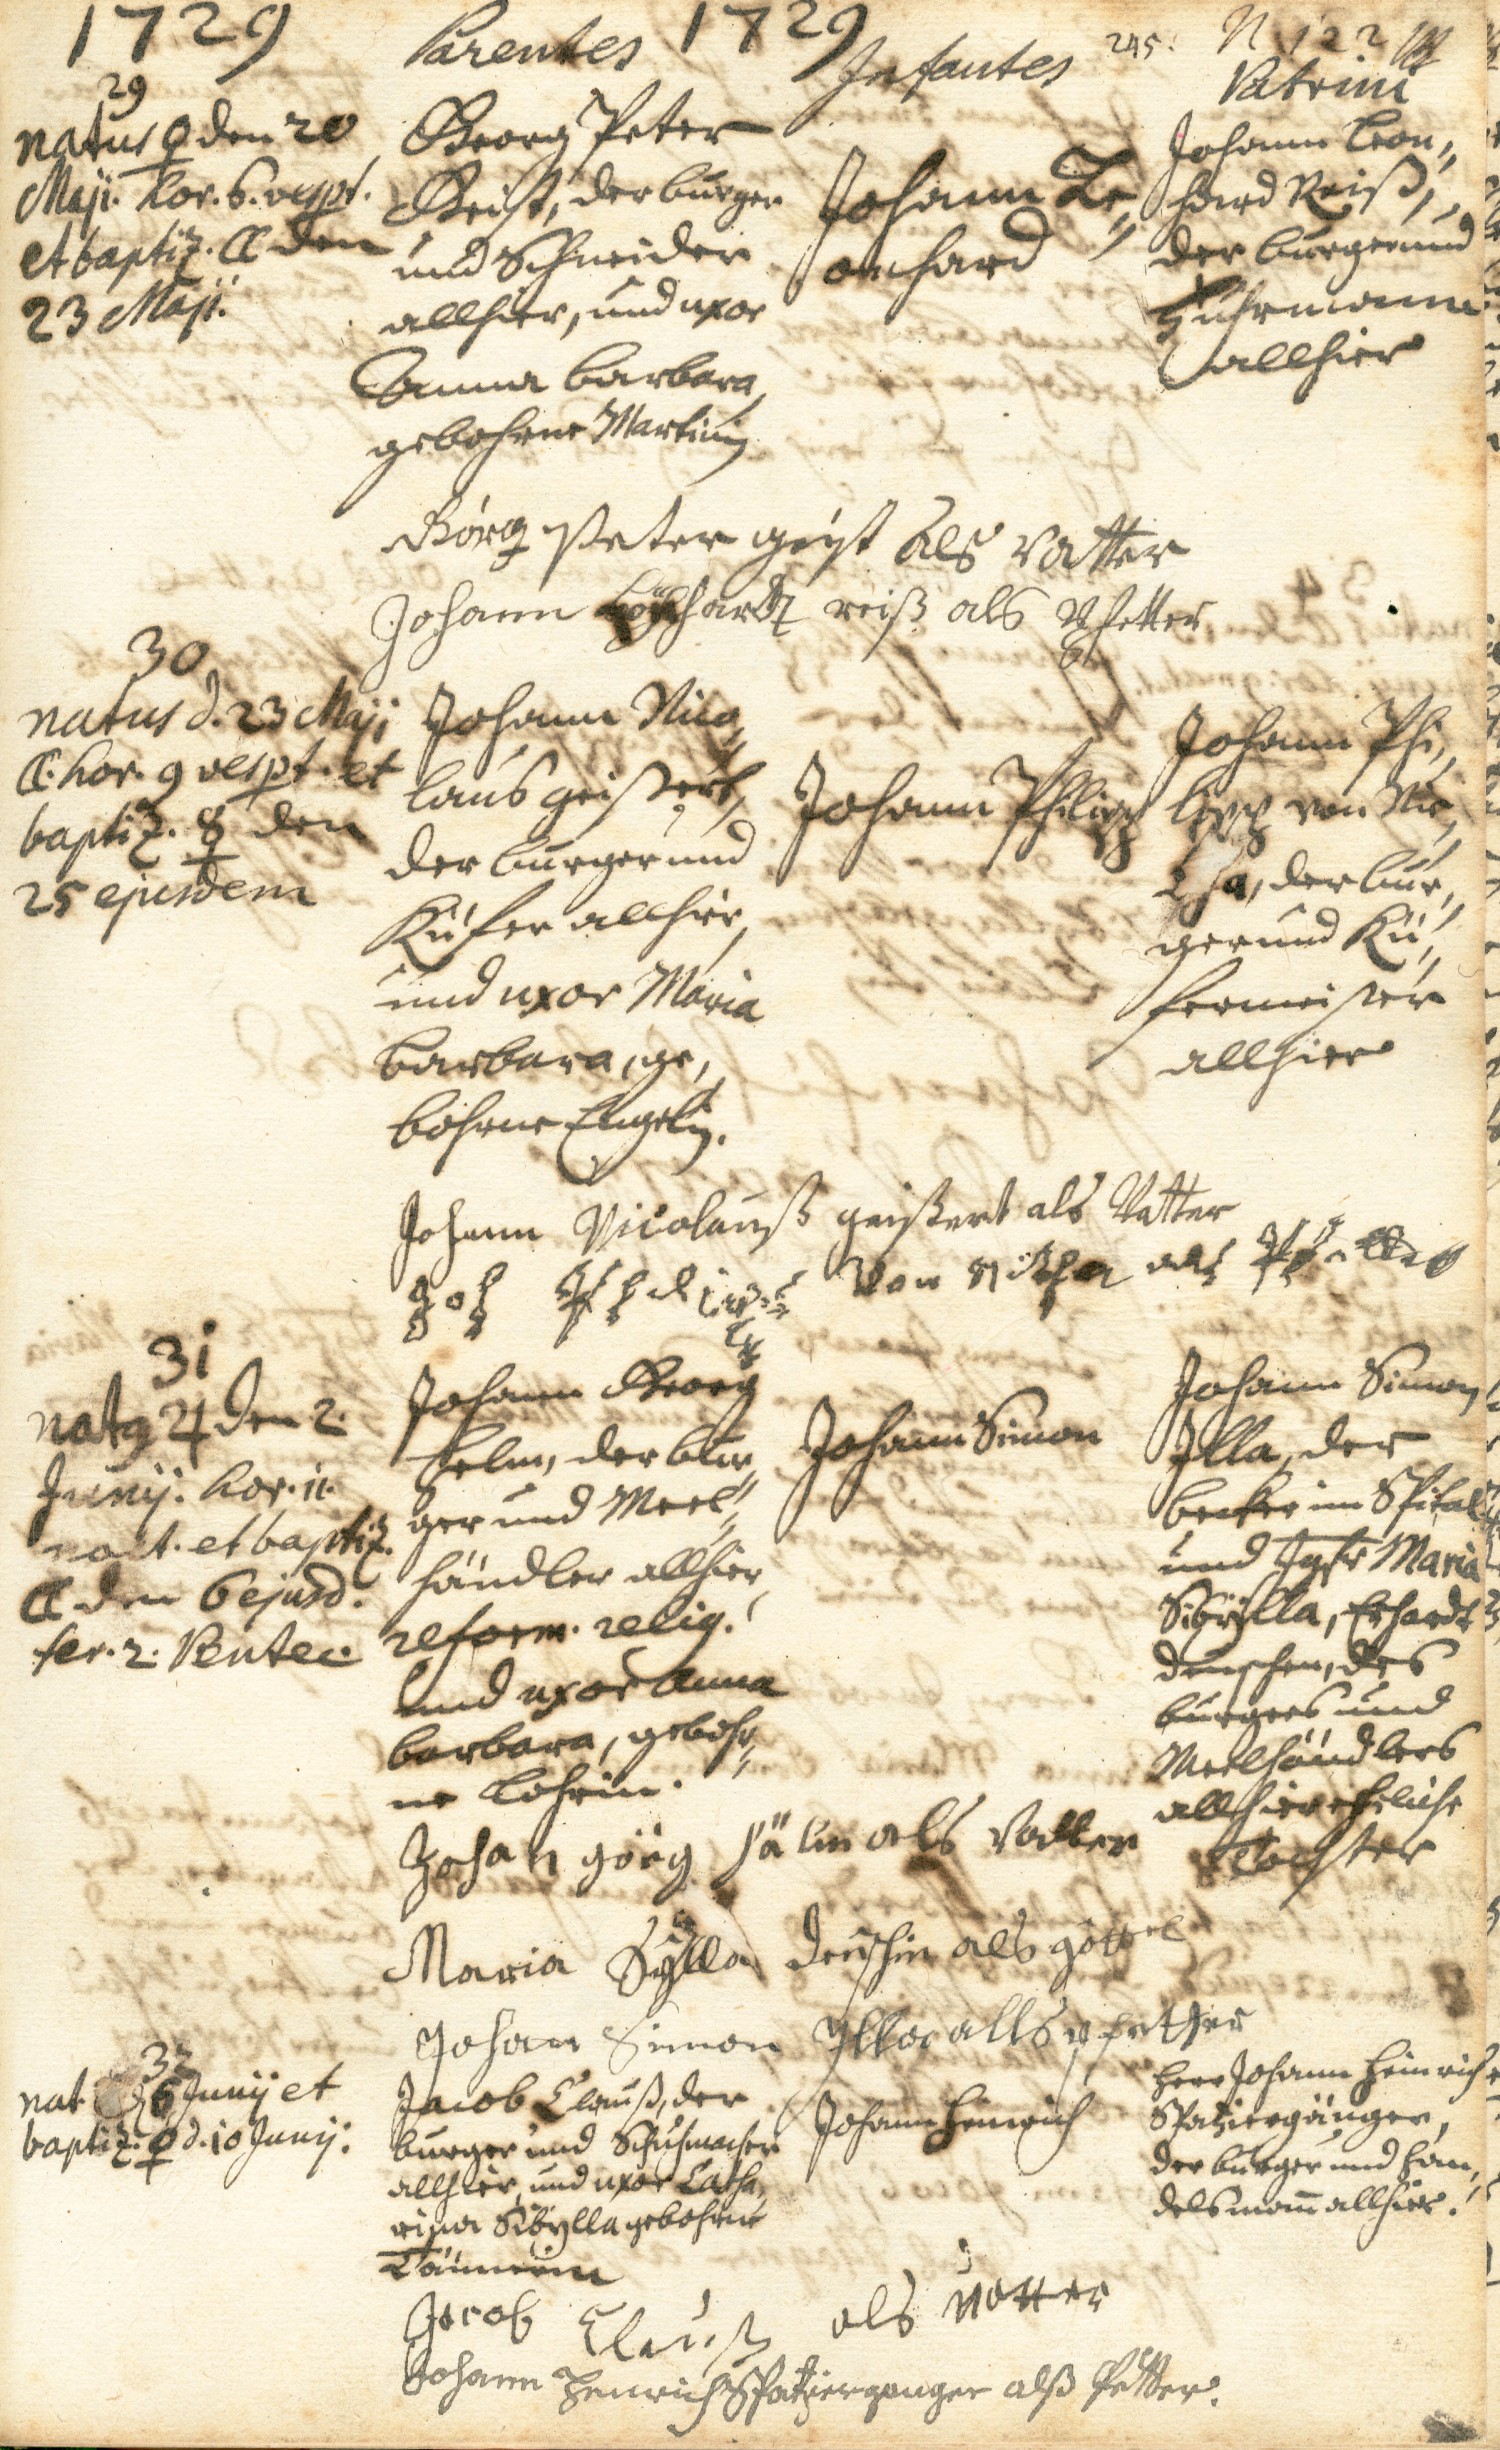 1729 Parentes 1729 Infantes 245. N 122
Patrini
29
natus ♀ den 20
Maji. hor. 6. vespt.
et baptiz. ☾ den
23 Maji.
Georg Peter
Geist, der burger
und Schneider
allhier, und uxor
Anna Barbara,
gebohrne Martinin
Johann Le„
onhard
Johann Leon„
hard Reiß,
der burger und
Fuhrmann
allhier
Görg Peter geist als Vatter
Johann reiß als Pfetter
30
natus d. 23 Maji
☾. hor. 9 vespt. et
baptiz. ☿ den
25 ejusdem
Johann Nico„
laus geißert,
der burger und
Küfer allhier,
und uxor Maria
Barbara, ge„
bohrne Engelin.
Johann Philipp
Johann Phi„
lipp von Nie„
da, der bur„
ger und Kü„
fermeister
allhier
Johann Nicolauß geißert als Vatter
Joh von als
31
natq ♃ den 2.
Junij. hor. 11.
noct. et baptiz.
☾ den 6 ejusd.
fer. 2. Pentec.
Johann Georg
Helm, der bur„
ger und Meel„
händler allhier,
reform. relig.
und uxor Anna
barbara, gebohr„
ne Lohrin.
Johann Simon
Johann Simon
Illa, der
becker im Spital
und Jgfr Maria
Sibÿlla, Erhardt
Deuschen, des
burgers und
Meelhändlers
allhier eheliche
Tochter
Johan görg hälm als Vatter
Maria Sÿlla deuschin als göttel
Johan Simon Illa alls pfetter
32
nat 6 Junij et
baptiz. ♀ d. 10 Junij.
Jacob Clauß, der
burger und Schuhmacher
allhier, und uxor Catha„
rina Sibylla gebohrne
Johann Henrich
Herr Johann Heinrich
Spatziergänger,
der burger und han„
delsmann allhier.
Jacob Clauß als Vatter
Johann Henrich Spatziergänger alß Petter.